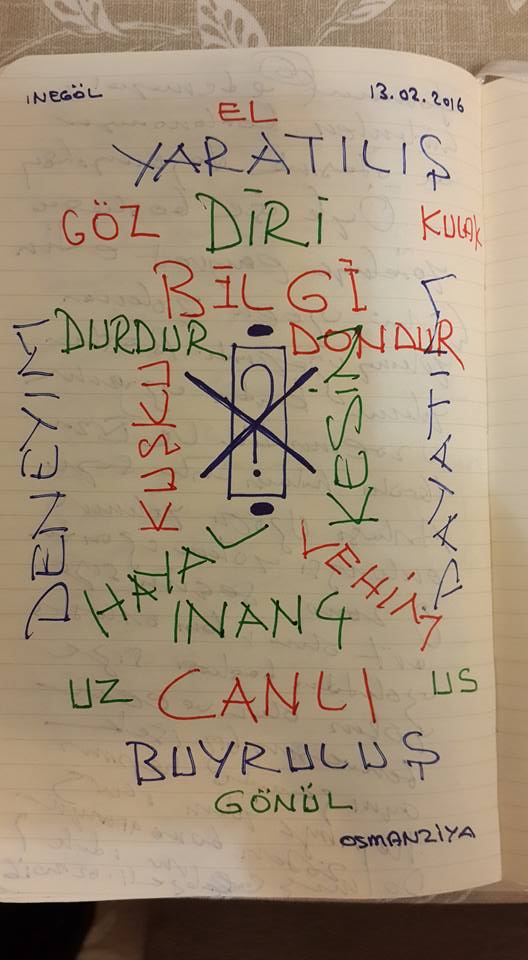 INEGÖL 13.02.2016
EL
YARATILIŞ
GÖZ DİRİ KULAK
BİLGİ
DURDUR DONDUR
DENEYİM
KUŞKU
?
KESİN
HAYAL VEHİM
INANÇ
UZ CANLI US
BUYRULUŞ
GÖNÜL
OSMANZİYA